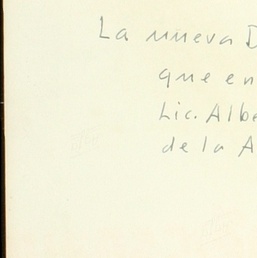 La nueva D
que en
Lic. Albe
de la A